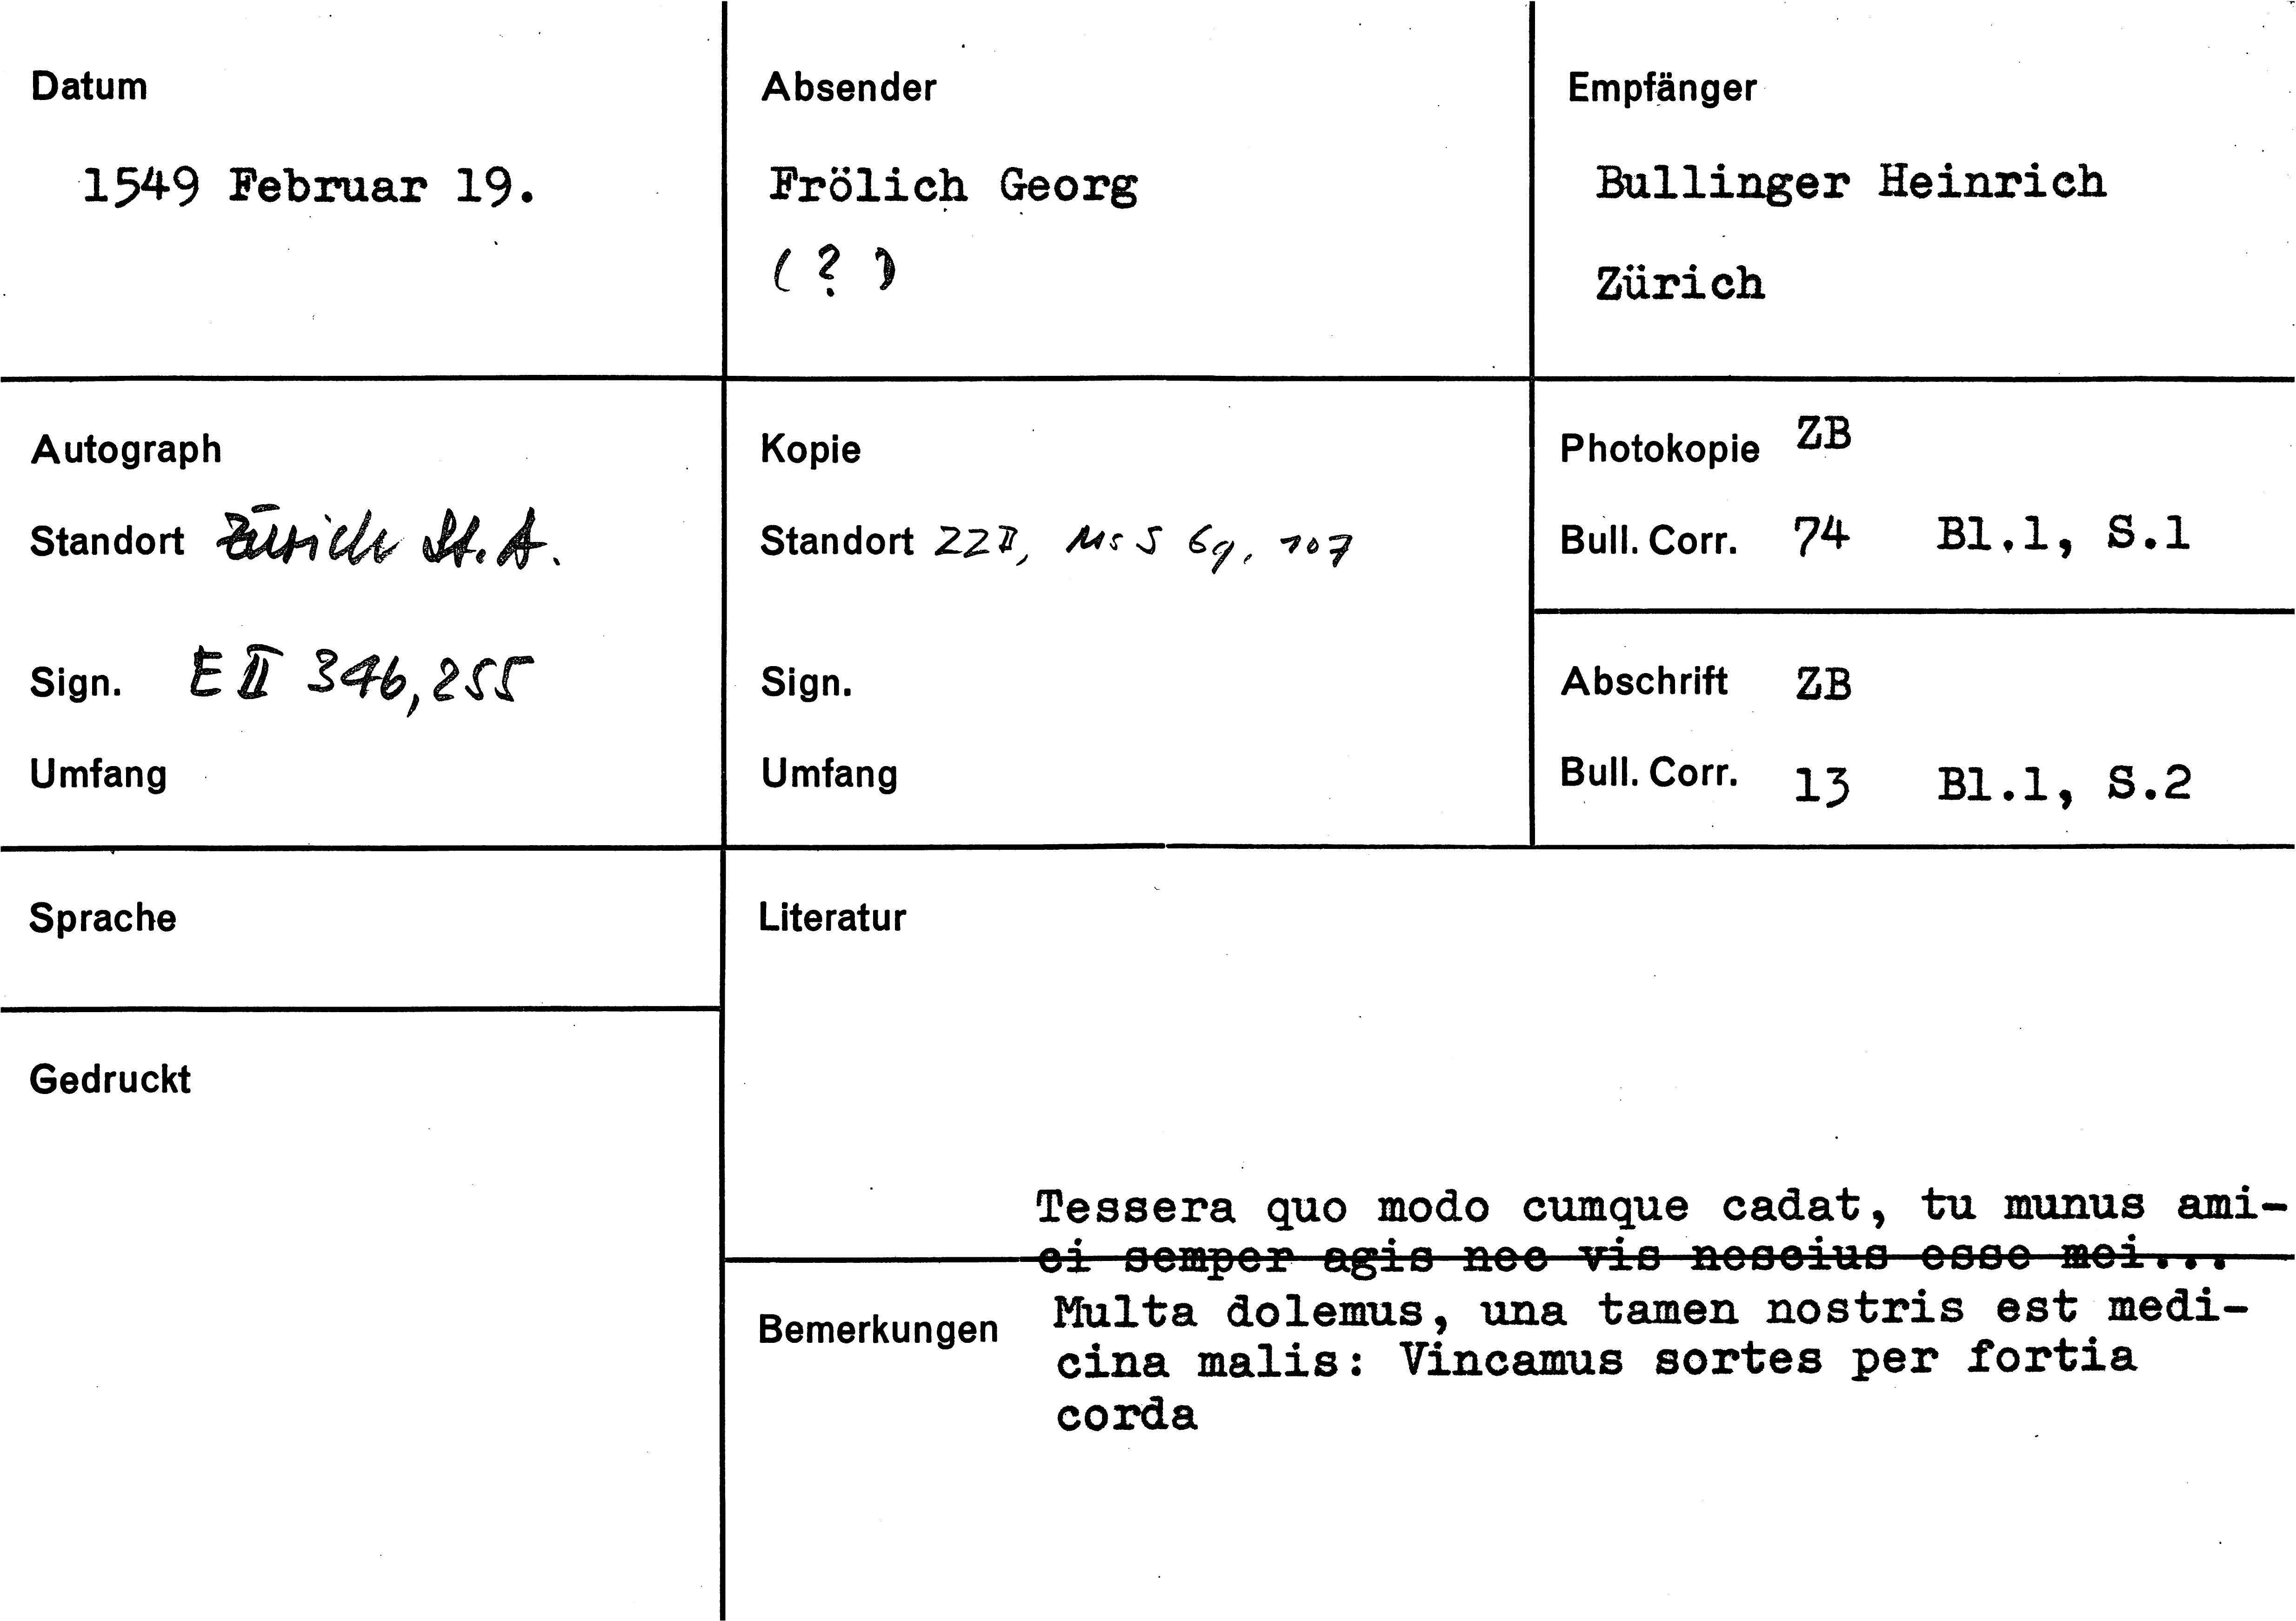 Datum
1549 Februar 19.
Absender
Frölich Georg
(?)
Empfänger
Bullinger Heinrich
Zürich
Autograph
Standort Zürich St. A.
Sign. E II 346, 255
Umfang
Kopie
Standort ZZII, Ms S 69, 107
Sign.
Umfang
Photokopie ZB
Bull. Corr. 74 Bl.1, S.1
Abschrift ZB
Bull. Corr. 13 Bl.1, S.2
Sprache
Gedruckt
Literatur
Tessera quo modo cumque cadat, tu munus ami-
ci semper agis nec vis nescius esse mei...
Bemerkungen
Multa dolemus, una tamen nostris est medi-
cina malis: Vincamus sortes per fortia
corda